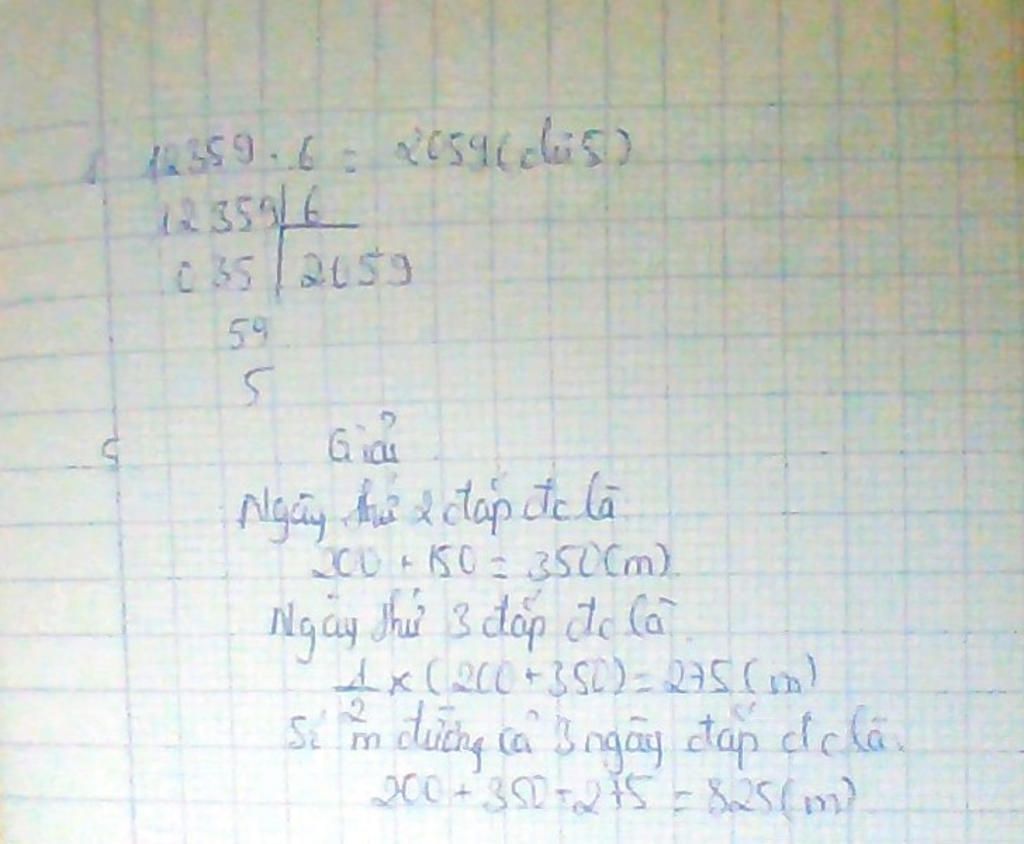 12359 : 6 = 2059 (dư 5)
12359 6
035 2059
59
5
Giải
Ngày thứ 2 đắp đc là
200 + 150 = 350 (m)
Ngày thứ 3 đắp đc là
1/2 x (200 + 350) = 275 (m)
Số m đường cả 3 ngày đắp đc là
200 + 350 + 275 = 825 (m)